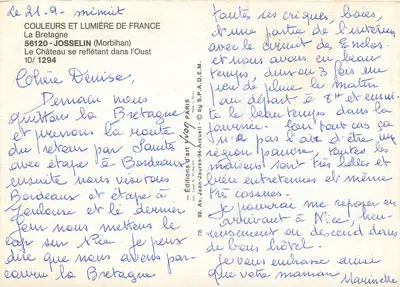 Le 21.9. minuit
COULEURS ET LUMIÈRE DE FRANCE
La Bretagne
56120 - JOSSELIN (Morbihan)
Le Château se reflétant dans l'Oust
10/ 1294
Chère Denise,
Demain nous
quittons la Bretagne
et prenons la route
du retour par Saintes
avec étape à Bordeaux
ensuite nous visitons
Bordeaux et étape à
Toulouse et le dernier
jour nous mettons le
cap sur Nice. Je peux
dire que nous avons par-
couru la Bretagne
- Éditions d'art yvon PARIS -
90, Av. Jean-Jaurès-94-Arcueil - © by S.P.A.D.E.M.
78
toutes ses criques, baies,
et une partie de l'intérieur
avec le circuit des Enclos.
et nous avons eu beau
temps, deux ou 3 fois un
peu de pluie le matin
au départ à 8H et ensui-
te le beau temps dans la
journée. En tout cas ça
n'a pas l'air d'être une
région pauvre, toutes les
maisons sont très belles et
bien entretenues et même
très cossues.
Je pourrai me reposer en
arrivant à Nice, heu-
reusement on descend dans
de bons hôtel.
Je vous embrasse ainsi
que votre maman
Marinette